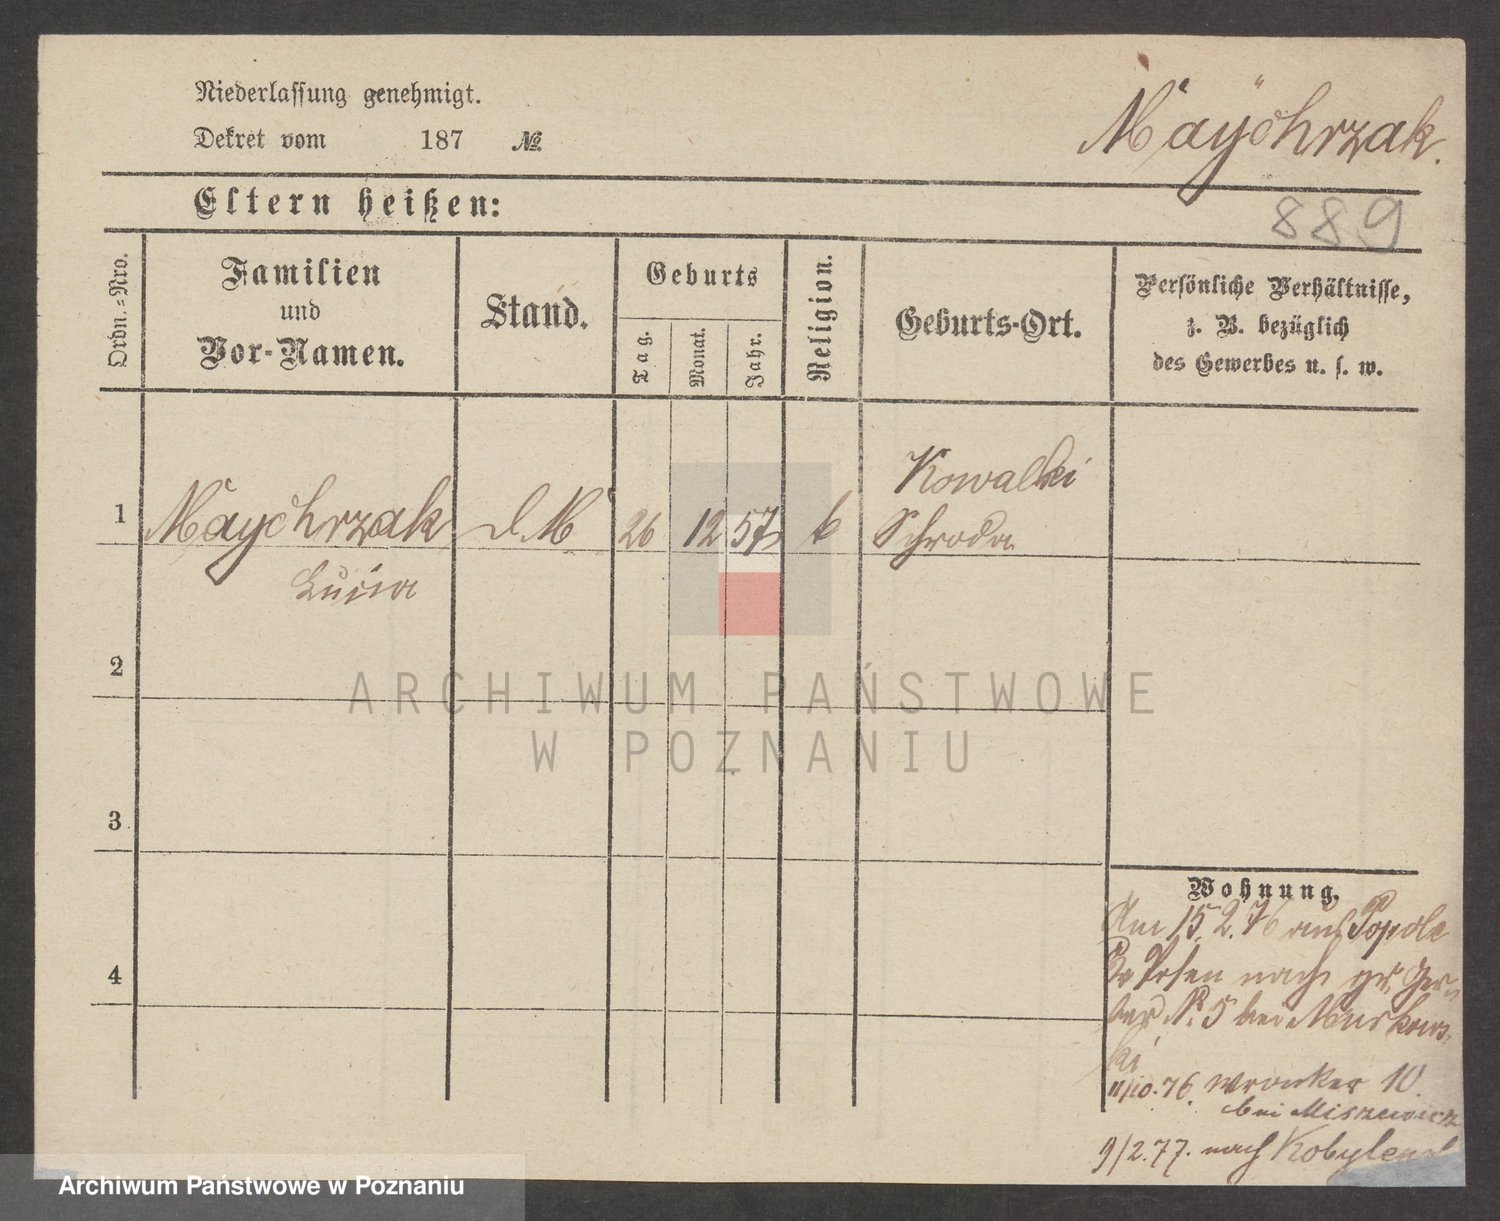 Niederlassung genehmigt.
Dekret vom 187 №
Maychrzak.
Eltern heißen:
889
Ordn.-Nro.
Familien
und
Vor-Namen.
Stand.
Geburts
Tag.
Monat.
Jahr.
Religion.
Geburts-Ort.
Persönliche Verhältnisse,
z. B. bezüglich
des Gewerbes u. s. w.
1 Maychrzak d. M 26 12 57 k Kowalski
Schroda
2
3
4
Wohnung.
Am 15. 2. 76 aus
Posen nach gr. Ger-
ber № 5 bei
ki
11/10. 76. Wronker 10.
bei Miszewicz
9/2. 77. nach
ARCHIWUM PAŃSTWOWE
W POZNANIU
Archiwum Państwowe w Poznaniu